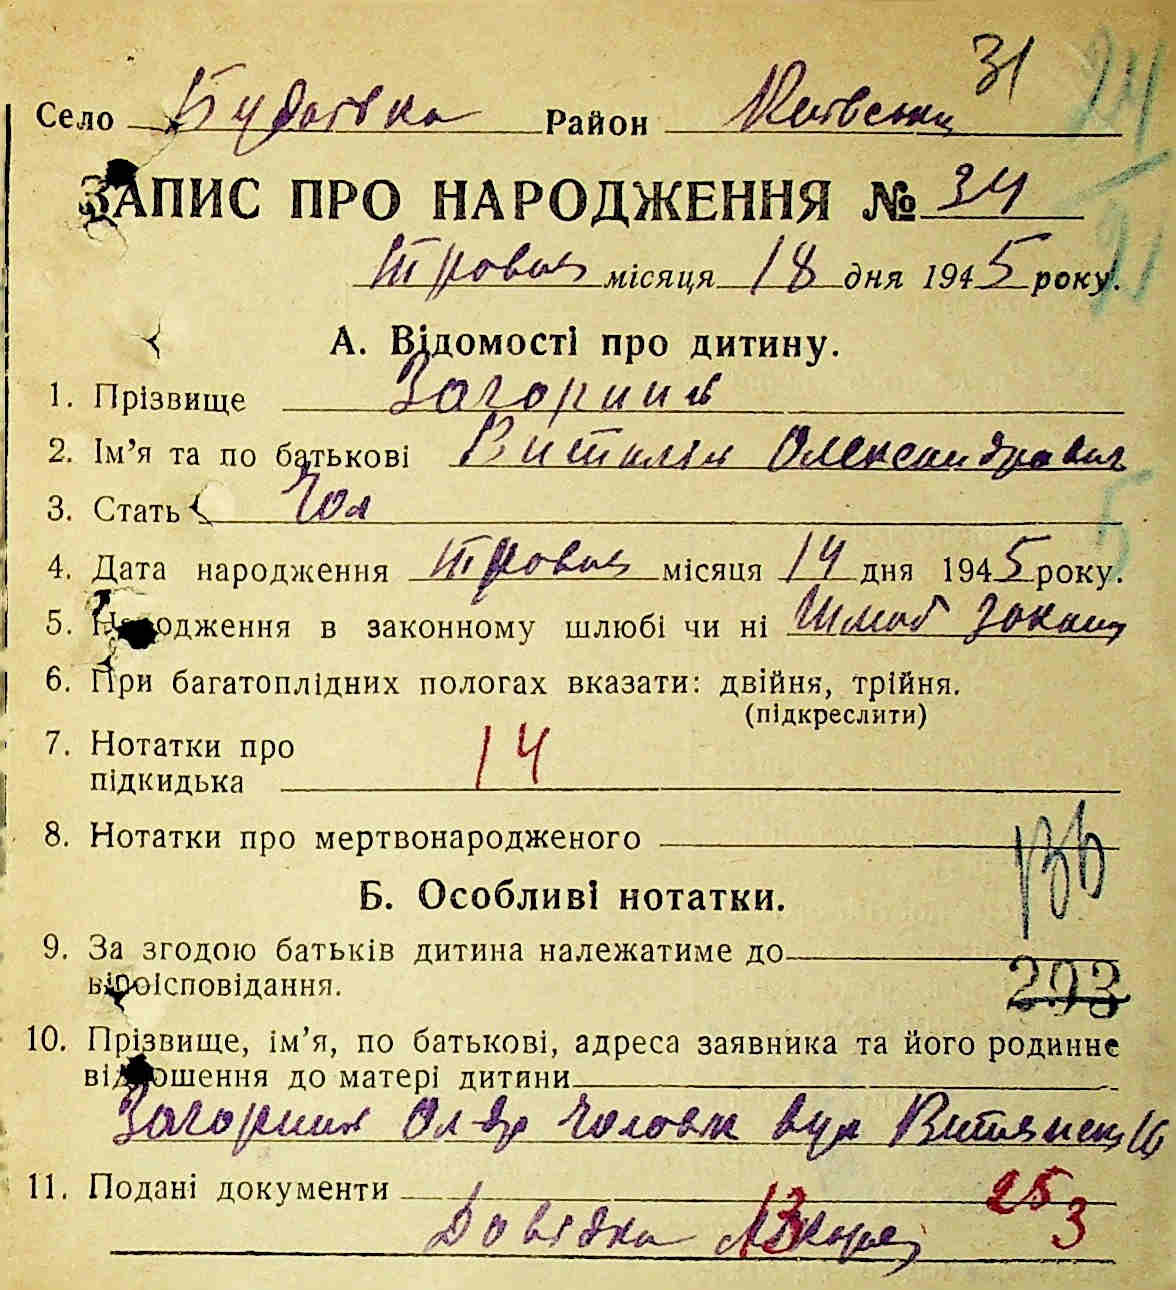 31
24
Село Будаївка Район Київський
ЗАПИС ПРО НАРОДЖЕННЯ № 34
21
Травня місяця 18 дня 1945 року.
А. Відомості про дитину.
1. Прізвище Загорний
2. Ім’я та по батькові Виталій Олександрович
3. Стать Чол
5
4. Дата народження Травня місяця 14 дня 1945 року.
5. Народження в законному шлюбі чи ні Шлюб законн
6. При багатоплідних пологах вказати: двійня, трійня.
(підкреслити)
7. Нотатки про 14
підкидька
8. Нотатки про мертвонародженого
Б. Особливі нотатки.
9. За згодою батьків дитина належатиме до
віроісповідання.
203
10. Прізвище, ім’я, по батькові, адреса заявника та його родинне
відношення до матері дитини
Загорний Ол-др Чоловік вул
11. Подані документи 25
Довідка лікаря 13 3